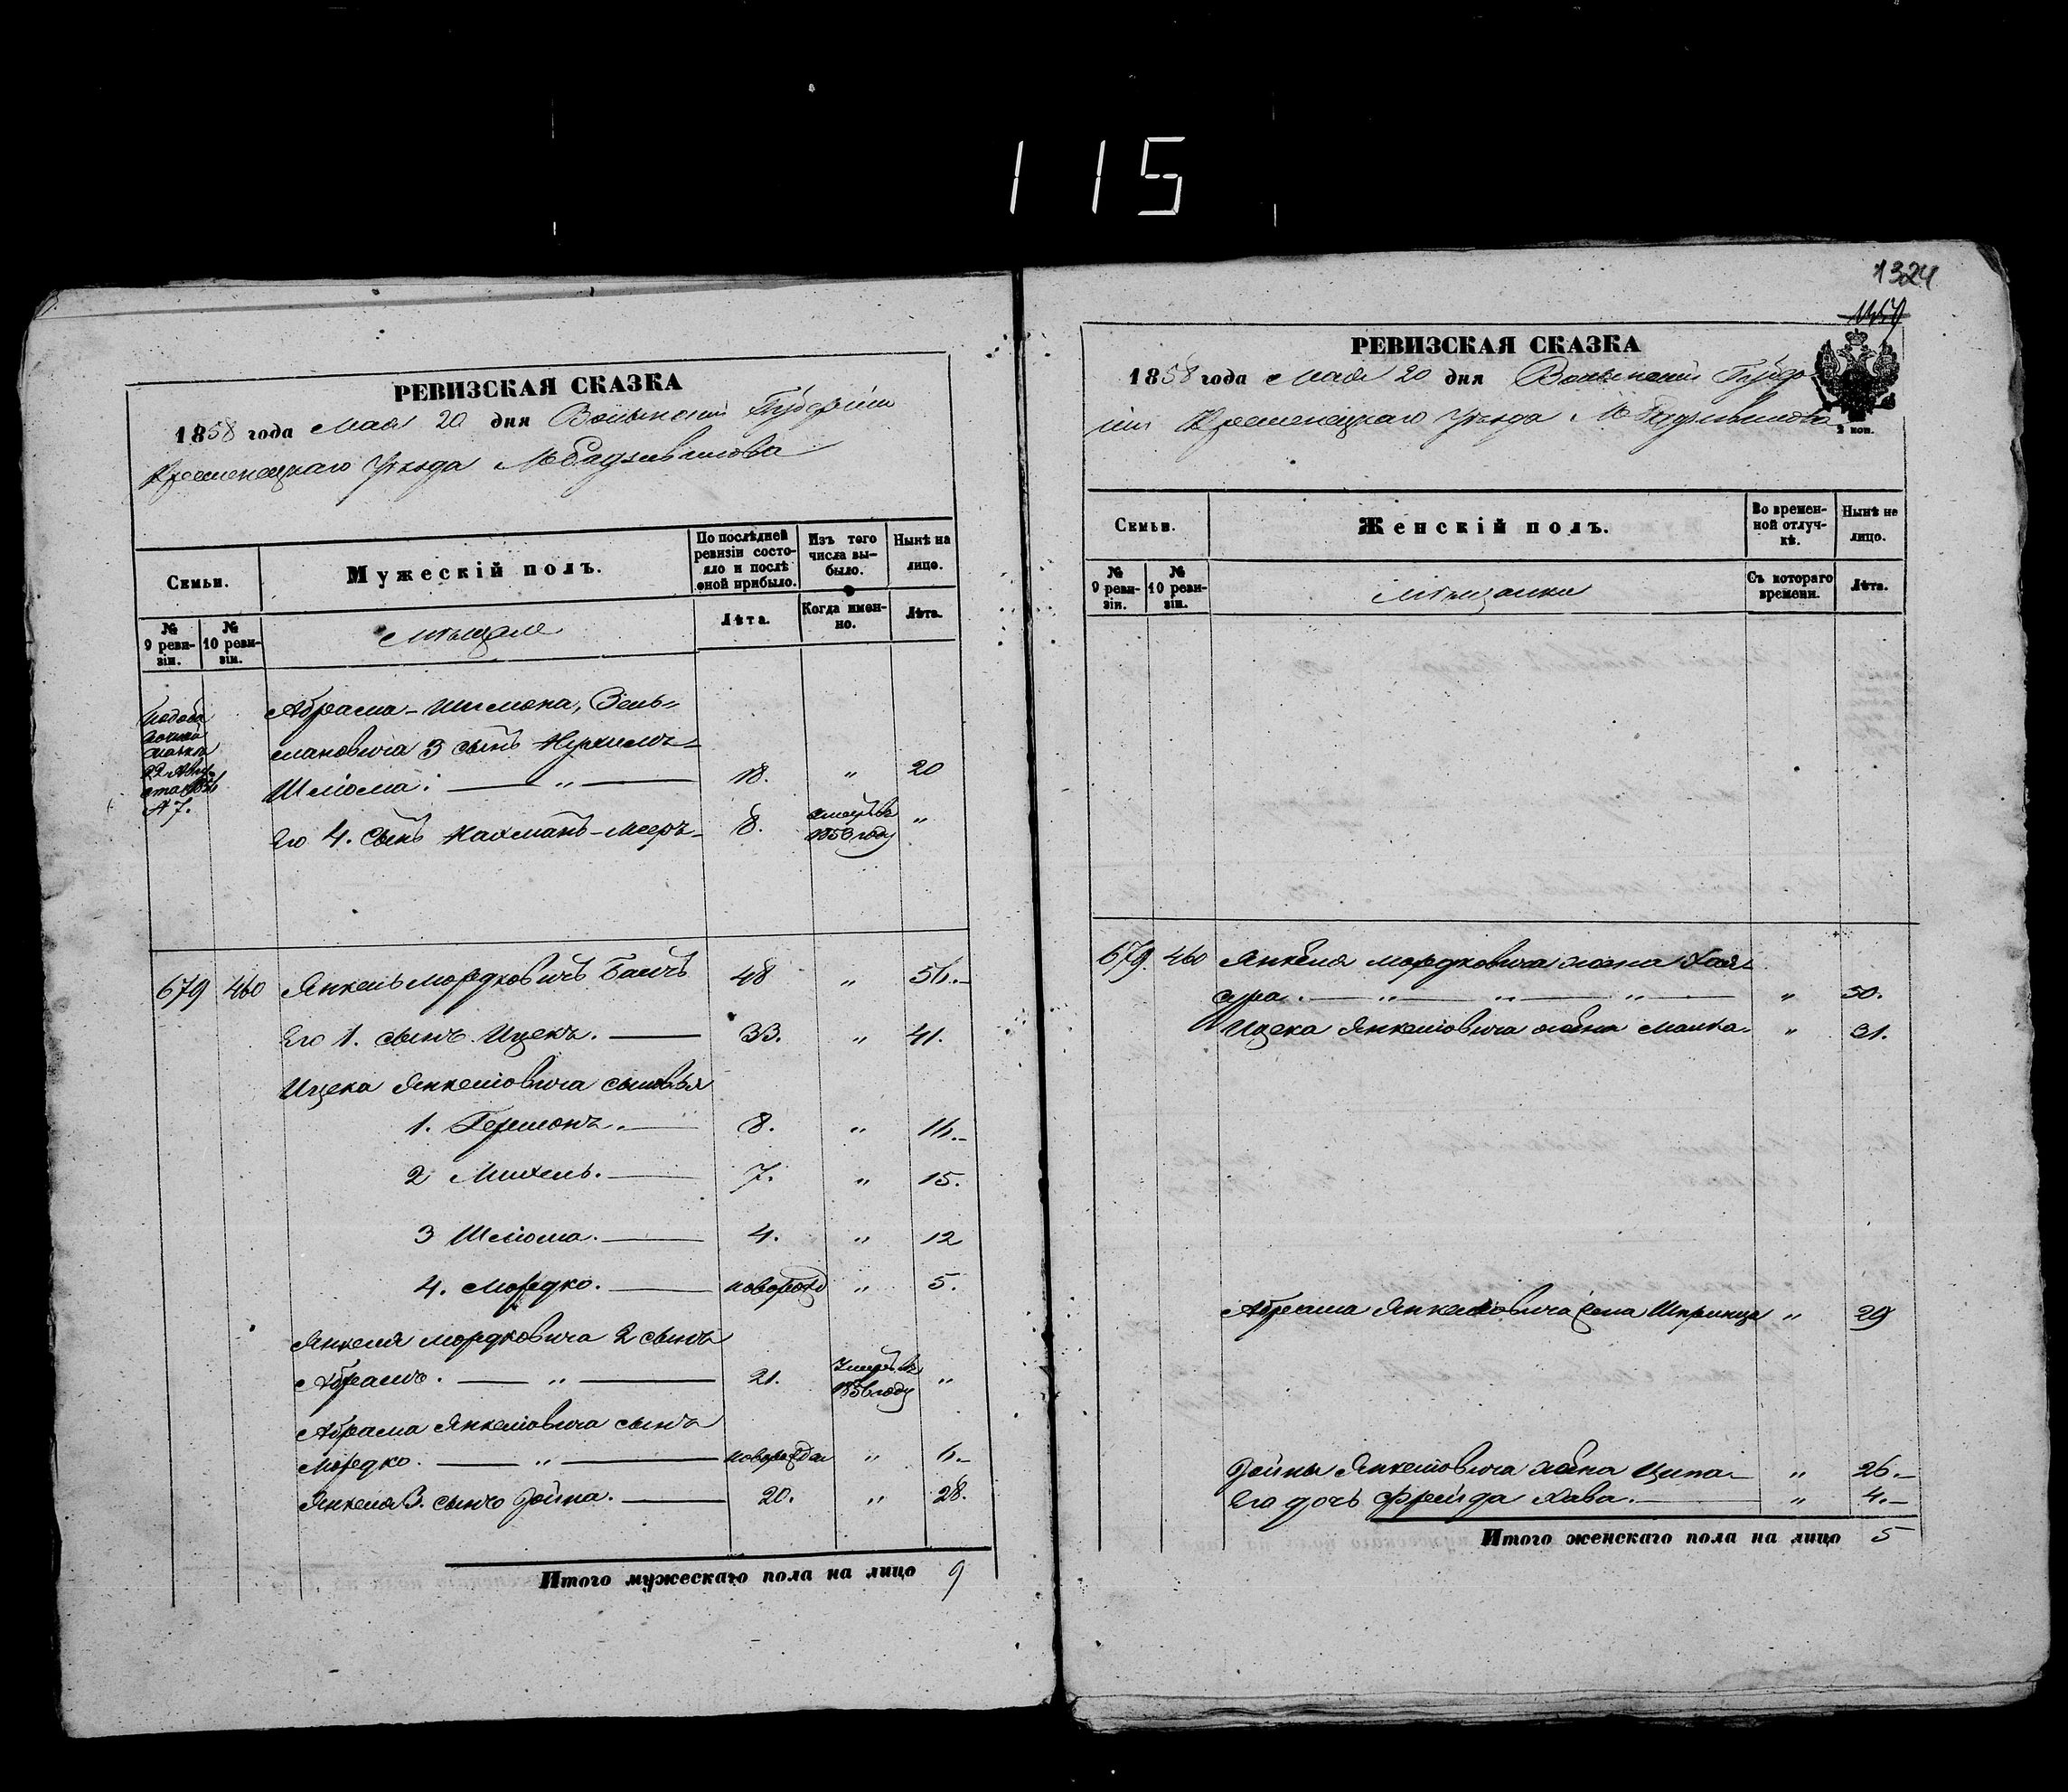 115
1324
РЕВИЗСКАЯ СКАЗКА
1858 года Мая 20 дня Волынской Губернии
Кременецкаго Уѣзда М Радзивилова
Семьи.
Мужескій полъ.
По послѣдней ревизіи состояло и послѣ оной прибыло.
Изъ того числа выбыло.
Нынѣ на лицо.
№ 9 ревизіи.
№ 10 ревизіи.
Мѣщане
Лѣта.
Когда именно.
Лѣта.
Абрама-Шимона, Зель-
мановича 3 сынъ
Шлiома. " 18. " 20
Его 4. сынъ Нахманъ-Мееръ 8. умеръ въ 1853 году "
679 460 Янкель Мордковичъ 48 " 56.
Его 1. сынъ Ицекъ. 33. " 41.
Ицека Янкеліовича сыновья
1. Гершонъ. 8. " 16.
2 Михель. 7. " 15.
3 Шліома. 4. " 12
4. Мордко. новорожд " 5.
Янкеля Мордковича 2 сынъ
Абрамъ. " 21. Умеръ въ 1856 году "
Абрама Янкеліовича сынъ
Мордко. " новорожден " 6.
Янкеля 3. сынъ Іойна. 20. " 28.
Итого мужескаго пола на лицо 9
РЕВИЗСКАЯ СКАЗКА
1858 года Мая 20 дня Волынской Губер-
ніи Кременецкаго Уѣзда М Радзивилова
2 коп.
Семьи.
Женскій полъ.
Во временной отлучкѣ.
Нынѣ не лицо.
№ 9 ревизіи.
№ 10 ревизіи.
Мѣщанки
Съ котораго времени.
Лѣта.
679. 460 Янкеля Мордковича жена Хая-
сура. " " " " 50.
Ицека Янкеліовича жена Малка. " 31.
Абрама Янкеліовича жена Шпринца " 29
Іойны Янкеліовича жена Ципа " 26.
Его дочь Фрейда Хава. " 4.
Итого женскаго пола на лицо 5